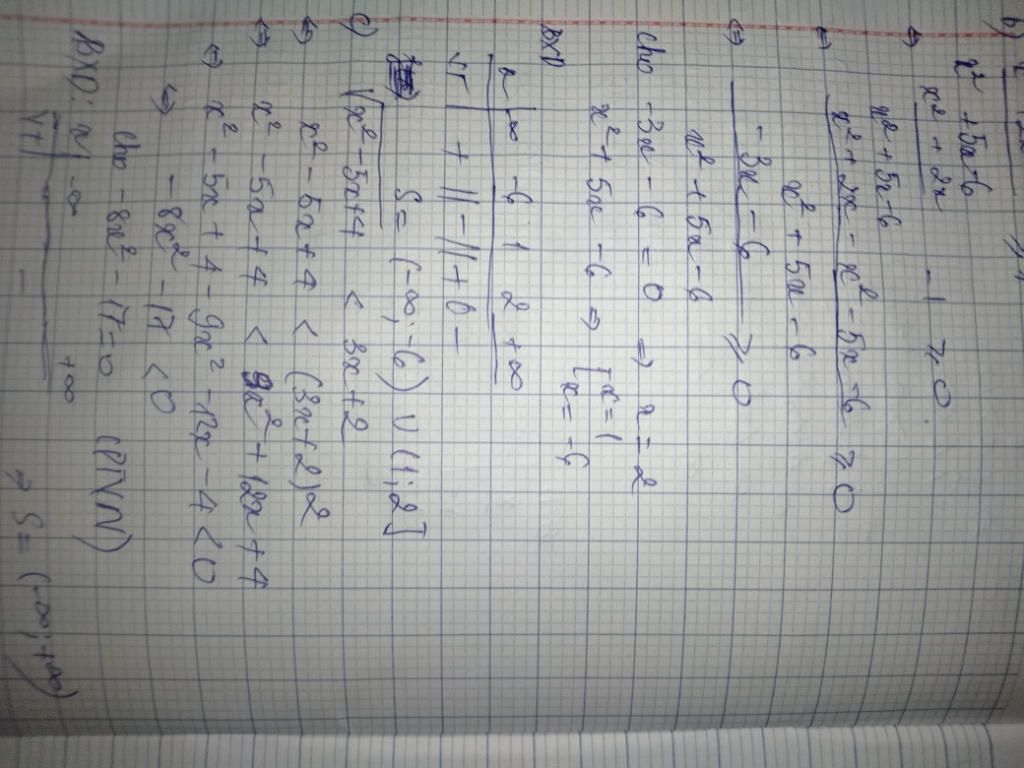 b)
x² + 5x - 6 / x² + 2x - 1 ≥ 0
⇔ x² + 2x - x² - 5x - 6 / x² + 5x - 6 ≥ 0
x² + 5x - 6
⇔ -3x - 6 / x² + 5x - 6 ≥ 0
Cho -3x - 6 = 0 ⇒ x = 2
x² + 5x - 6 ⇒ [ x = 1
x = -6
BXD
x | -∞ -6 1 2 +∞
VT | + || - || + 0 -
S = (-∞; -6) ∪ (1; 2]
c) √x² - 5x + 4 < 3x + 2
⇔ x² - 5x + 4 < (3x + 2)2
⇔ x² - 5x + 4 < 9x² + 12x + 4
⇔ x² - 5x + 4 - 9x² - 12x - 4 < 0
⇔ -8x² - 17 < 0
Cho -8x² - 17 = 0 (PVN)
BXD: x | -∞ +∞
VT | -
⇒ S = (-∞; +∞)